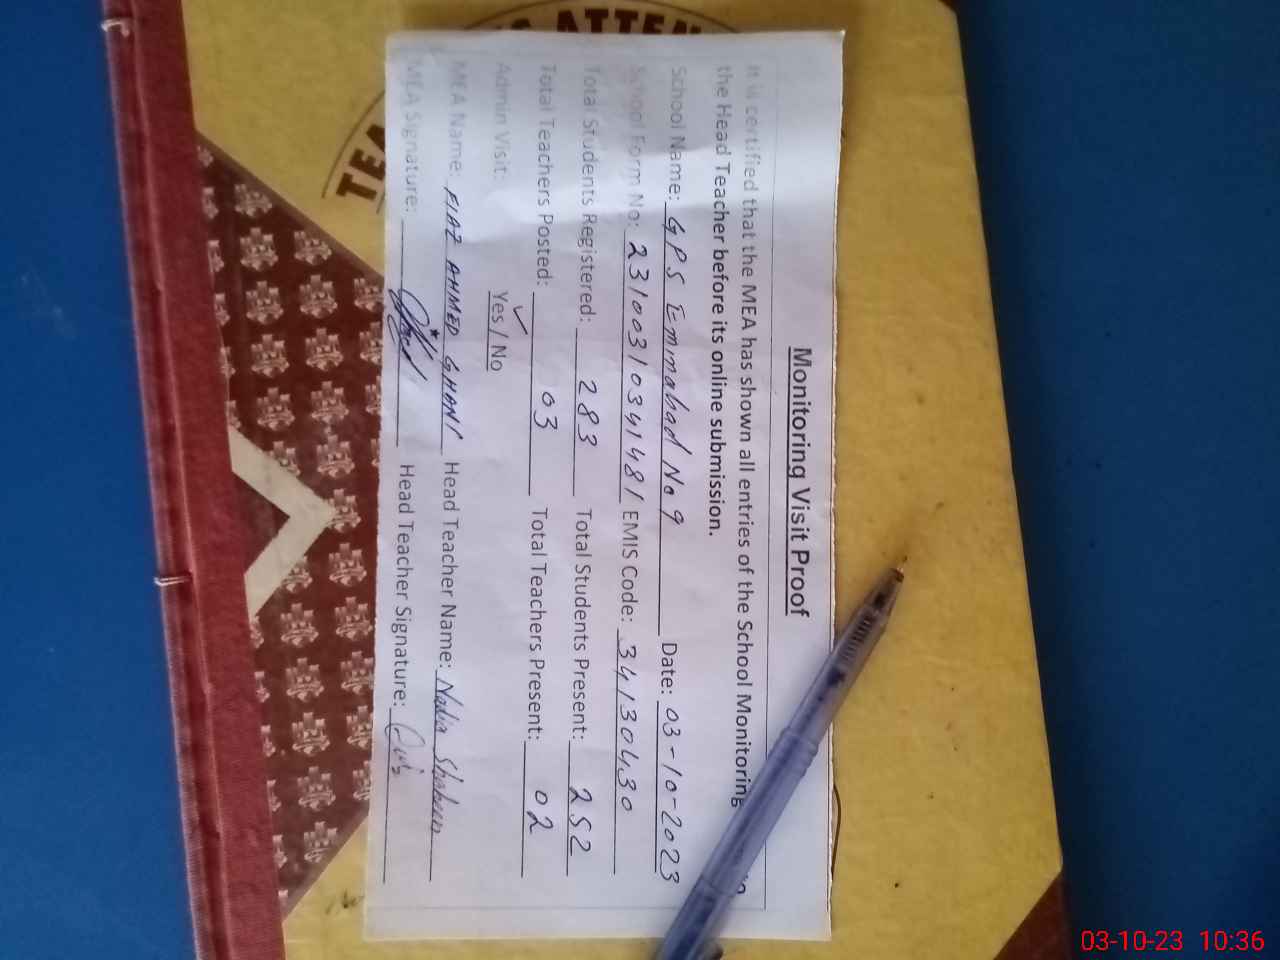 Monitoring Visit Proof
It is certified that the MEA has shown all entries of the School Monitoring
the Head Teacher before its online submission.
School Name: GPS Emmabad No 9 Date: 03-10-2023
School Form No: 23100310341481 EMIS Code: 34130430
Total Students Registered: 283 Total Students Present: 252
Total Teachers Posted: 03 Total Teachers Present: 02
Admin Visit: Yes / No
MEA Name: FIAZ AHMED GHANI Head Teacher Name: Nadia Shaheen
MEA Signature: Head Teacher Signature:
03-10-23 10:36